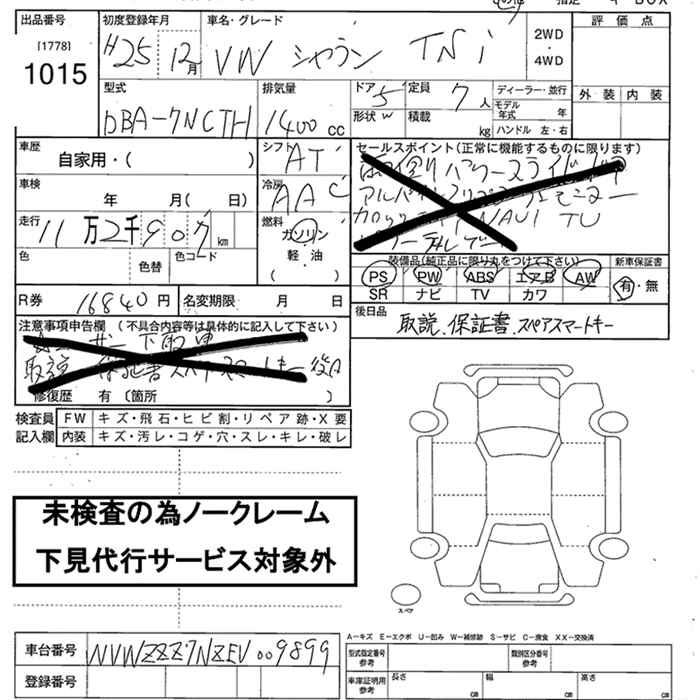 出品番号 初度登録年月 車名・グレード 評価点
[1778]
1015 H25 12月 VW シャラン TSi 2WD ・ 4WD
型式 排気量 ドア 5 定員 7人 ディーラー・並行 外装 内装
モデル年式 年
DBA-7NCTH 1400cc 形状 W 積載 kg ハンドル 左・右
車歴 シフト AT セールスポイント(正常に機能するものに限ります)
自家用・( )
車検 年 月( 日) 冷房 AAC
走行 11万2千907km 燃料 ガソリン
軽・油
( )
色 色替 色コード 装備品(純正品に限り丸をつけて下さい) 新車保証書
PS PW ABS エアB AW 有・無
SR ナビ TV カワ
R券 16840円 名変期限 月 日 後日品
取説、保証書、スペアスマートキー
注意事項申告欄 (不具合内容等は具体的に記入して下さい)
取説 保証書 スペアスマートキー 後日
修復歴 有(箇所 )
検査員 FW キズ・飛石・ヒビ割・リペア跡・X要
記入欄 内装 キズ・汚レ・コゲ・穴・スレ・キレ・破レ
未検査の為ノークレーム
下見代行サービス対象外
スペア
A-キズ E-エクボ U-凹み W-補修跡 S-サビ C-腐食 XX-交換済
車台番号 WVWZZZ7NZEV009899 型式指定番号 参考 類別区分番号 参考
登録番号 車庫証明用 参考 長さ cm 幅 cm 高さ cm